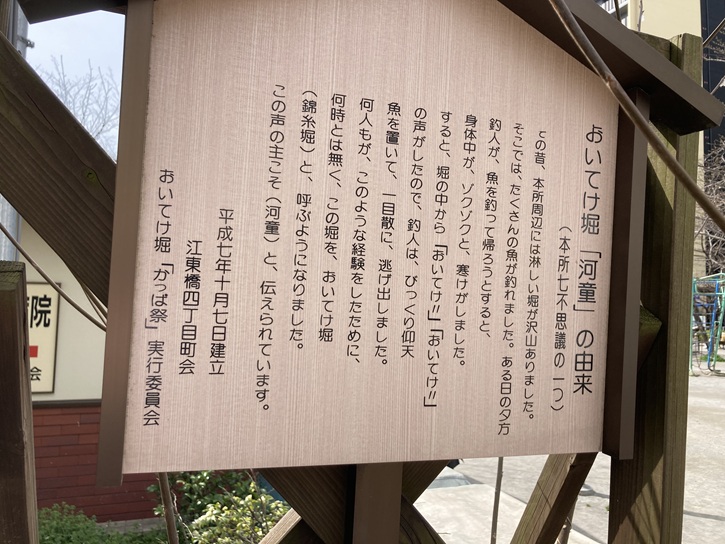 おいてけ堀「河童」の由来
（本所七不思議の一つ）
この昔、本所周辺には淋しい堀が沢山ありました。
そこでは、たくさんの魚が釣れました。ある日の夕方
釣人が、魚を釣って帰ろうとすると、
身体中が、ゾクゾクと、寒けがしました。
すると、堀の中から「おいてけ!!」「おいてけ!!」
の声がしたので、釣人は、びっくり仰天
魚を置いて、一目散に、逃げ出しました。
何人もが、このような経験をしたために、
何時とは無く、この堀を、おいてけ堀
（錦糸堀）と、呼ぶようになりました。
この声の主こそ（河童）と、伝えられています。
平成七年十月七日建立
江東橋四丁目町会
おいてけ堀「かっぱ祭」実行委員会
院
会